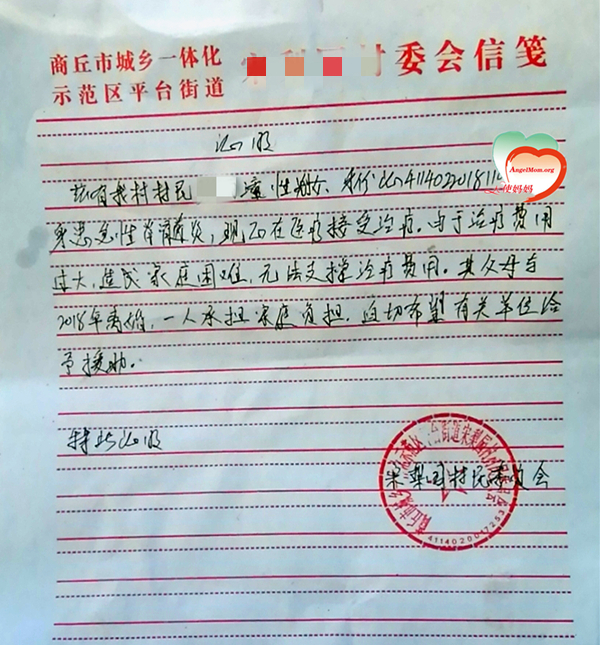 商丘市城乡一体化
示范区平台街道
村委会信笺
证明
兹有我村村民 童性别女 身份证411402201811
AngelMom.org
天使妈妈
身患急性 炎，现正在医疗接受治疗。由于治疗费用
过大，造成家庭困难，无法支撑治疗费用。其父母与
2018年离婚，一人承担家庭负担，迫切希望有关单位给
予援助。
特此证明
村民委员会